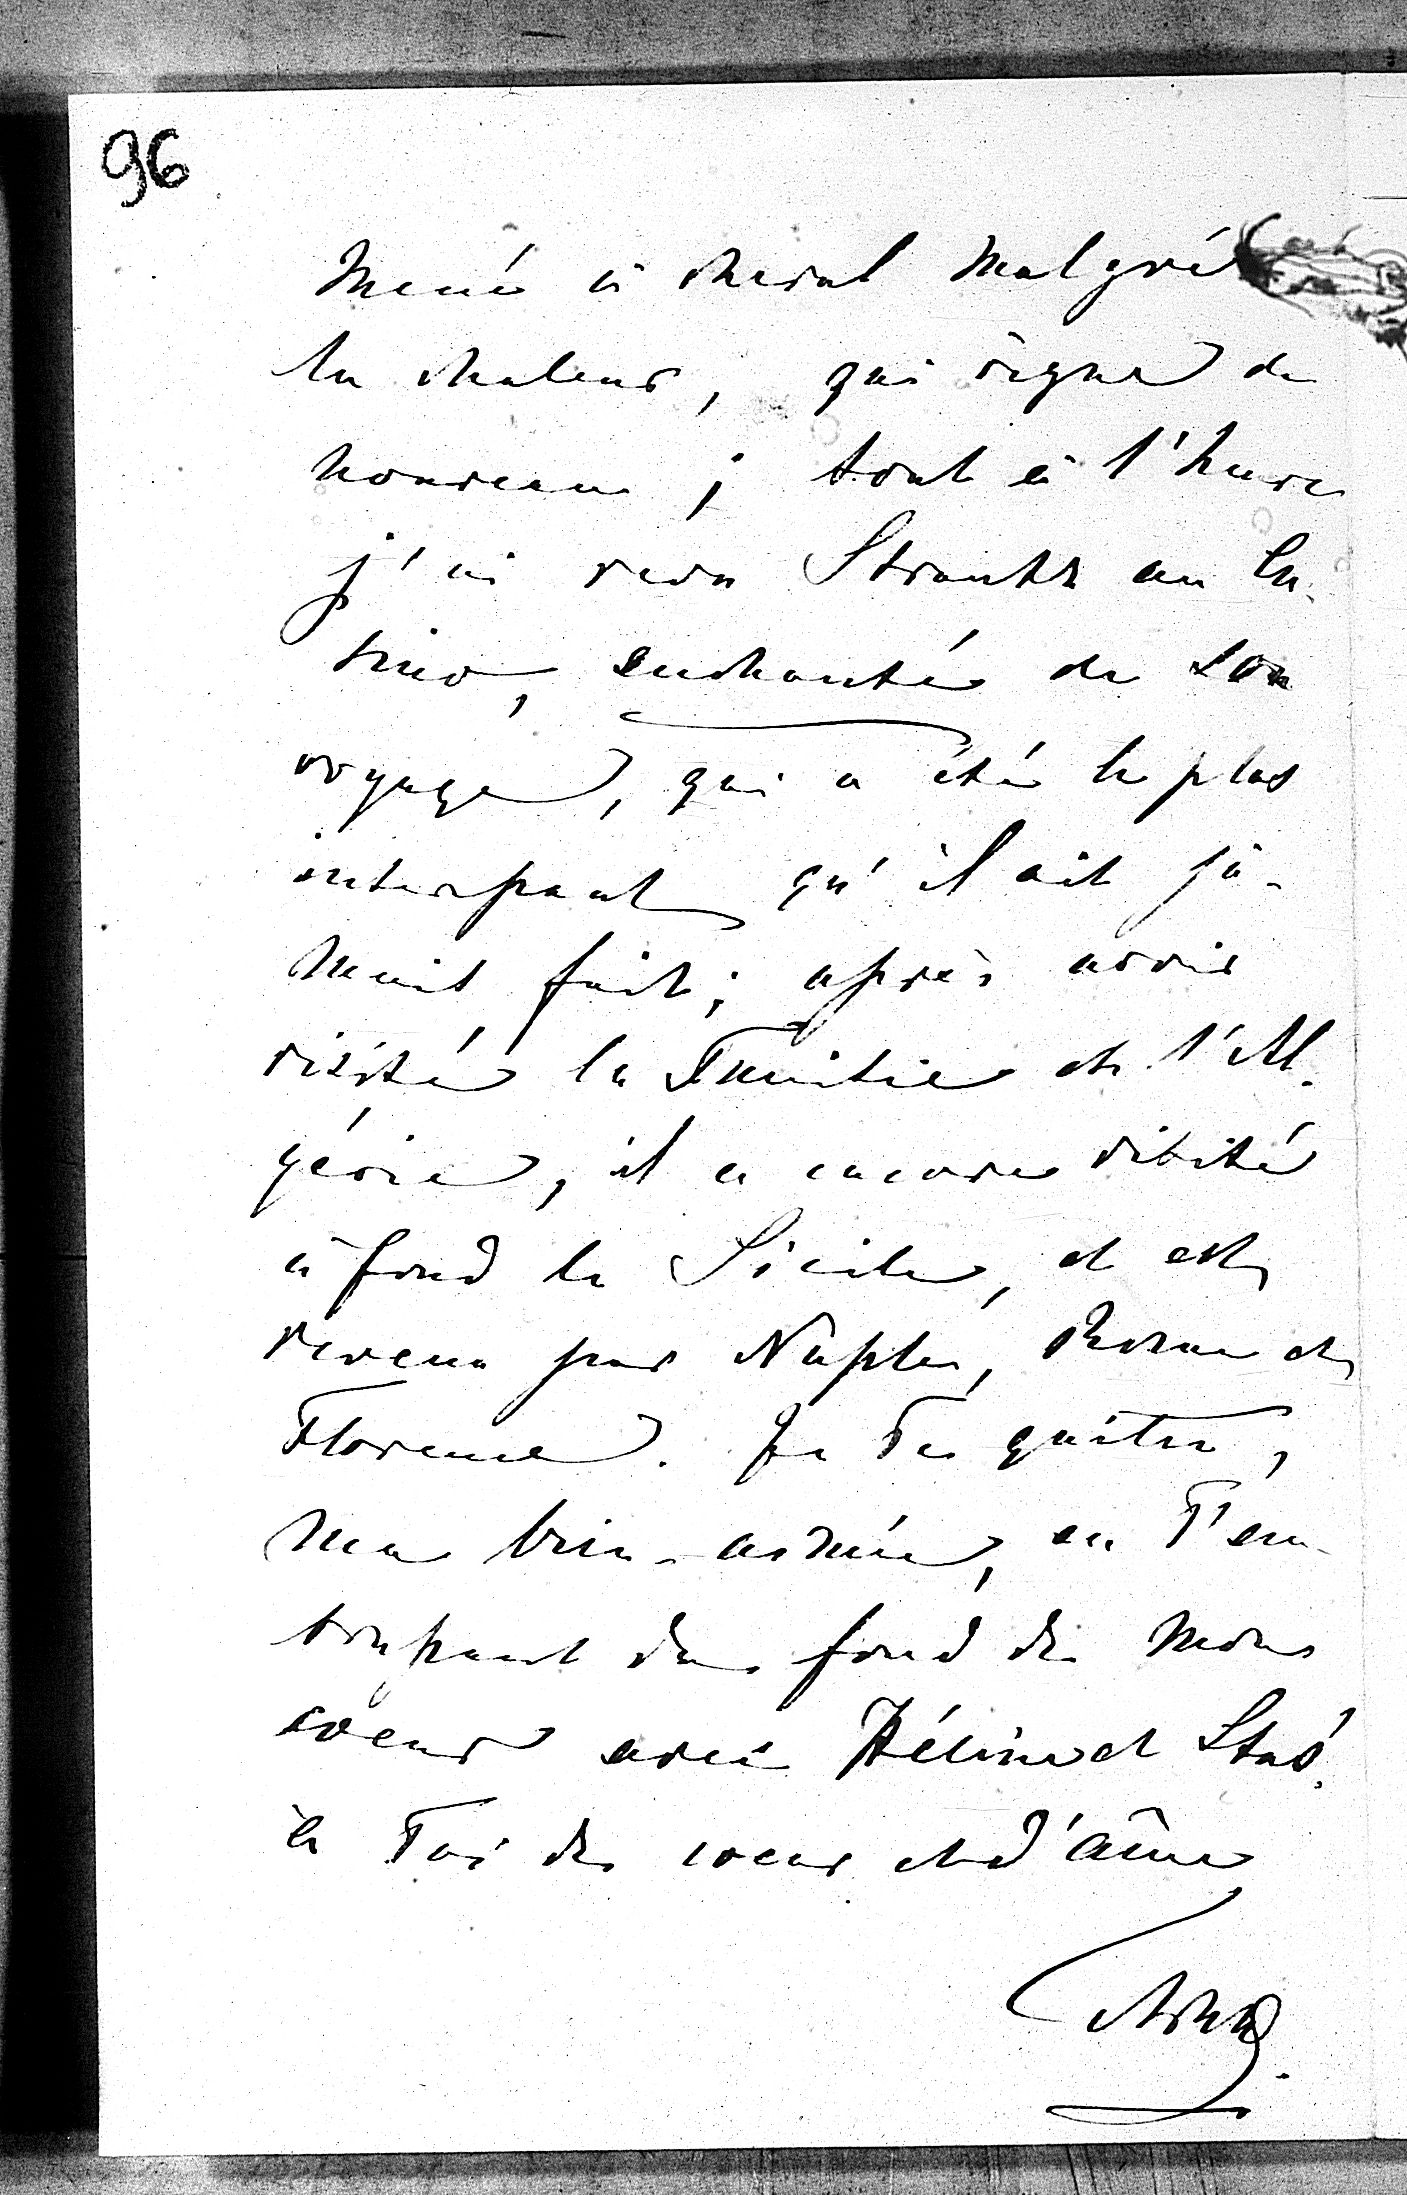 96
mené à cheval malgré
la chaleur, qui règne de
nouveau; tout à l'heure
j'ai revu Strantz au Ca-
sino, enchanté de son
voyage, qui a été le plus
interessant qu'il ait ja-
mais fait; après avoir
visité la Tunisie et l'Al-
gérie, il a encore visité
à fond la Sicile, et est
revenu par Naples, Rome et
Florence. Je Te quitte,
ma bien-aimée, en T'em-
brassant du fond de mon
coeur avec Hélène et Stas.
à Toi de coeur et d'âme